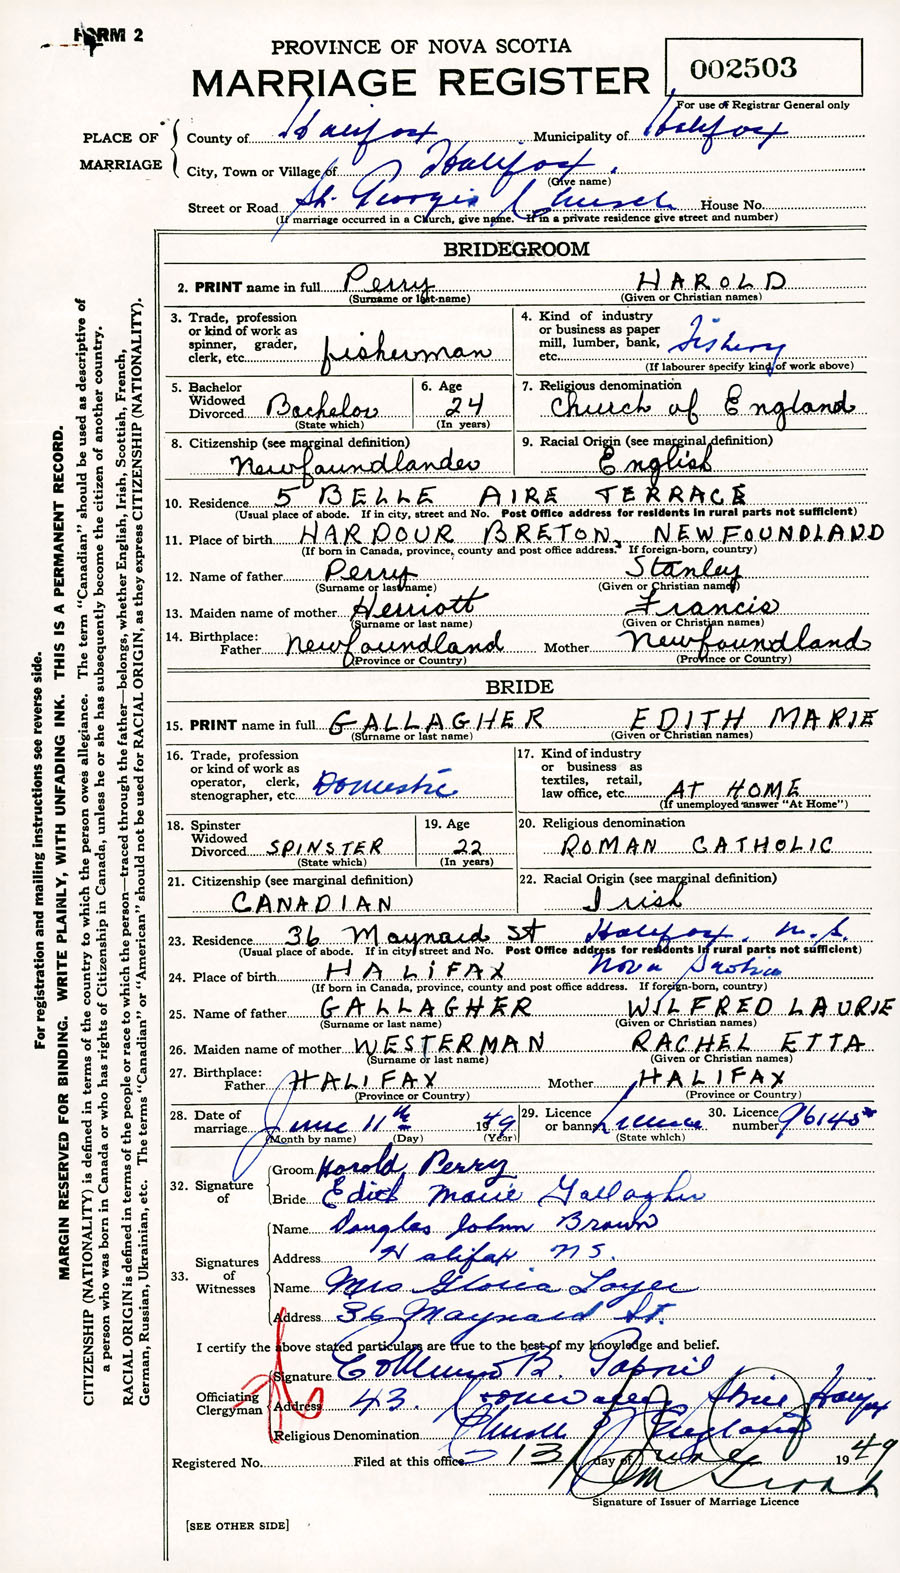 FORM 2
PROVINCE OF NOVA SCOTIA
MARRIAGE REGISTER
002503
For use of Registrar General only
PLACE OF MARRIAGE
County of Halifax Municipality of Halifax
City, Town or Village of Halifax
(Give name)
Street or Road St. George's Church House No.
(If marriage occurred in a Church, give name. If in a private residence give street and number)
BRIDEGROOM
2. PRINT name in full Perry HAROLD
(Surname or last name) (Given or Christian names)
3. Trade, profession or kind of work as spinner, grader, clerk, etc. fisherman
4. Kind of industry or business as paper mill, lumber, bank, etc. Fishery
(If labourer specify kind of work above)
5. Bachelor Widowed Divorced Bachelor
(State which)
6. Age 24
(In years)
7. Religious denomination Church of England
8. Citizenship (see marginal definition) Newfoundlander
9. Racial Origin (see marginal definition) English
10. Residence 5 BELLE AIRE TERRACE
(Usual place of abode. If in city, street and No. Post Office address for residents in rural parts not sufficient)
11. Place of birth HARDOUR BRETON, NEWFOUNDLAND
(If born in Canada, province, county and post office address. If foreign-born, country)
12. Name of father Perry Stanley
(Surname or last name) (Given or Christian names)
13. Maiden name of mother Herriott Francis
(Surname or last name) (Given or Christian names)
14. Birthplace: Father Newfoundland Mother Newfoundland
(Province or Country) (Province or Country)
BRIDE
15. PRINT name in full GALLAGHER EDITH MARIE
(Surname or last name) (Given or Christian names)
16. Trade, profession or kind of work as operator, clerk, stenographer, etc. Domestic
17. Kind of industry or business as textiles, retail, law office, etc. AT HOME
(If unemployed answer "At Home")
18. Spinster Widowed Divorced SPINSTER
(State which)
19. Age 22
(In years)
20. Religious denomination ROMAN CATHOLIC
21. Citizenship (see marginal definition) CANADIAN
22. Racial Origin (see marginal definition) Irish
23. Residence 36 Maynard St Halifax. N.S.
(Usual place of abode. If in city street and No. Post Office address for residents in rural parts not sufficient)
24. Place of birth HALIFAX Nova Scotia
(If born in Canada, province, county and post office address. If foreign-born, country)
25. Name of father GALLAGHER WILFRED LAURIE
(Surname or last name) (Given or Christian names)
26. Maiden name of mother WESTERMAN RACHEL ETTA
(Surname or last name) (Given or Christian names)
27. Birthplace: Father HALIFAX Mother HALIFAX
(Province or Country) (Province or Country)
28. Date of marriage June 11th 1949
(Month by name) (Day) (Year)
29. Licence or banns License
(State which)
30. Licence number
32. Signature of
Groom Harold Perry
Bride Edith Marie Gallagher
33. Signatures of Witnesses
Name Douglas John Brown
Address Halifax N.S.
Name Mrs Gloria
Address 36 Maynard St.
I certify the above stated particulars are true to the best of my knowledge and belief.
Officiating Clergyman
Signature
Address 43 Halifax
Religious Denomination Church of England
Registered No. Filed at this office 13 day of June 1949
Signature of Issuer of Marriage Licence
[SEE OTHER SIDE]
For registration and mailing instructions see reverse side.
MARGIN RESERVED FOR BINDING. WRITE PLAINLY, WITH UNFADING INK. THIS IS A PERMANENT RECORD.
CITIZENSHIP (NATIONALITY) is defined in terms of the country to which the person owes allegiance. The term "Canadian" should be used as descriptive of
a person who was born in Canada or who has rights of Citizenship in Canada, unless he or she has subsequently become the citizen of another country.
RACIAL ORIGIN is defined in terms of the people or race to which the person—traced through the father—belongs, whether English, Irish, Scottish, French,
German, Russian, Ukrainian, etc. The terms "Canadian" or "American" should not be used for RACIAL ORIGIN, as they express CITIZENSHIP (NATIONALITY).